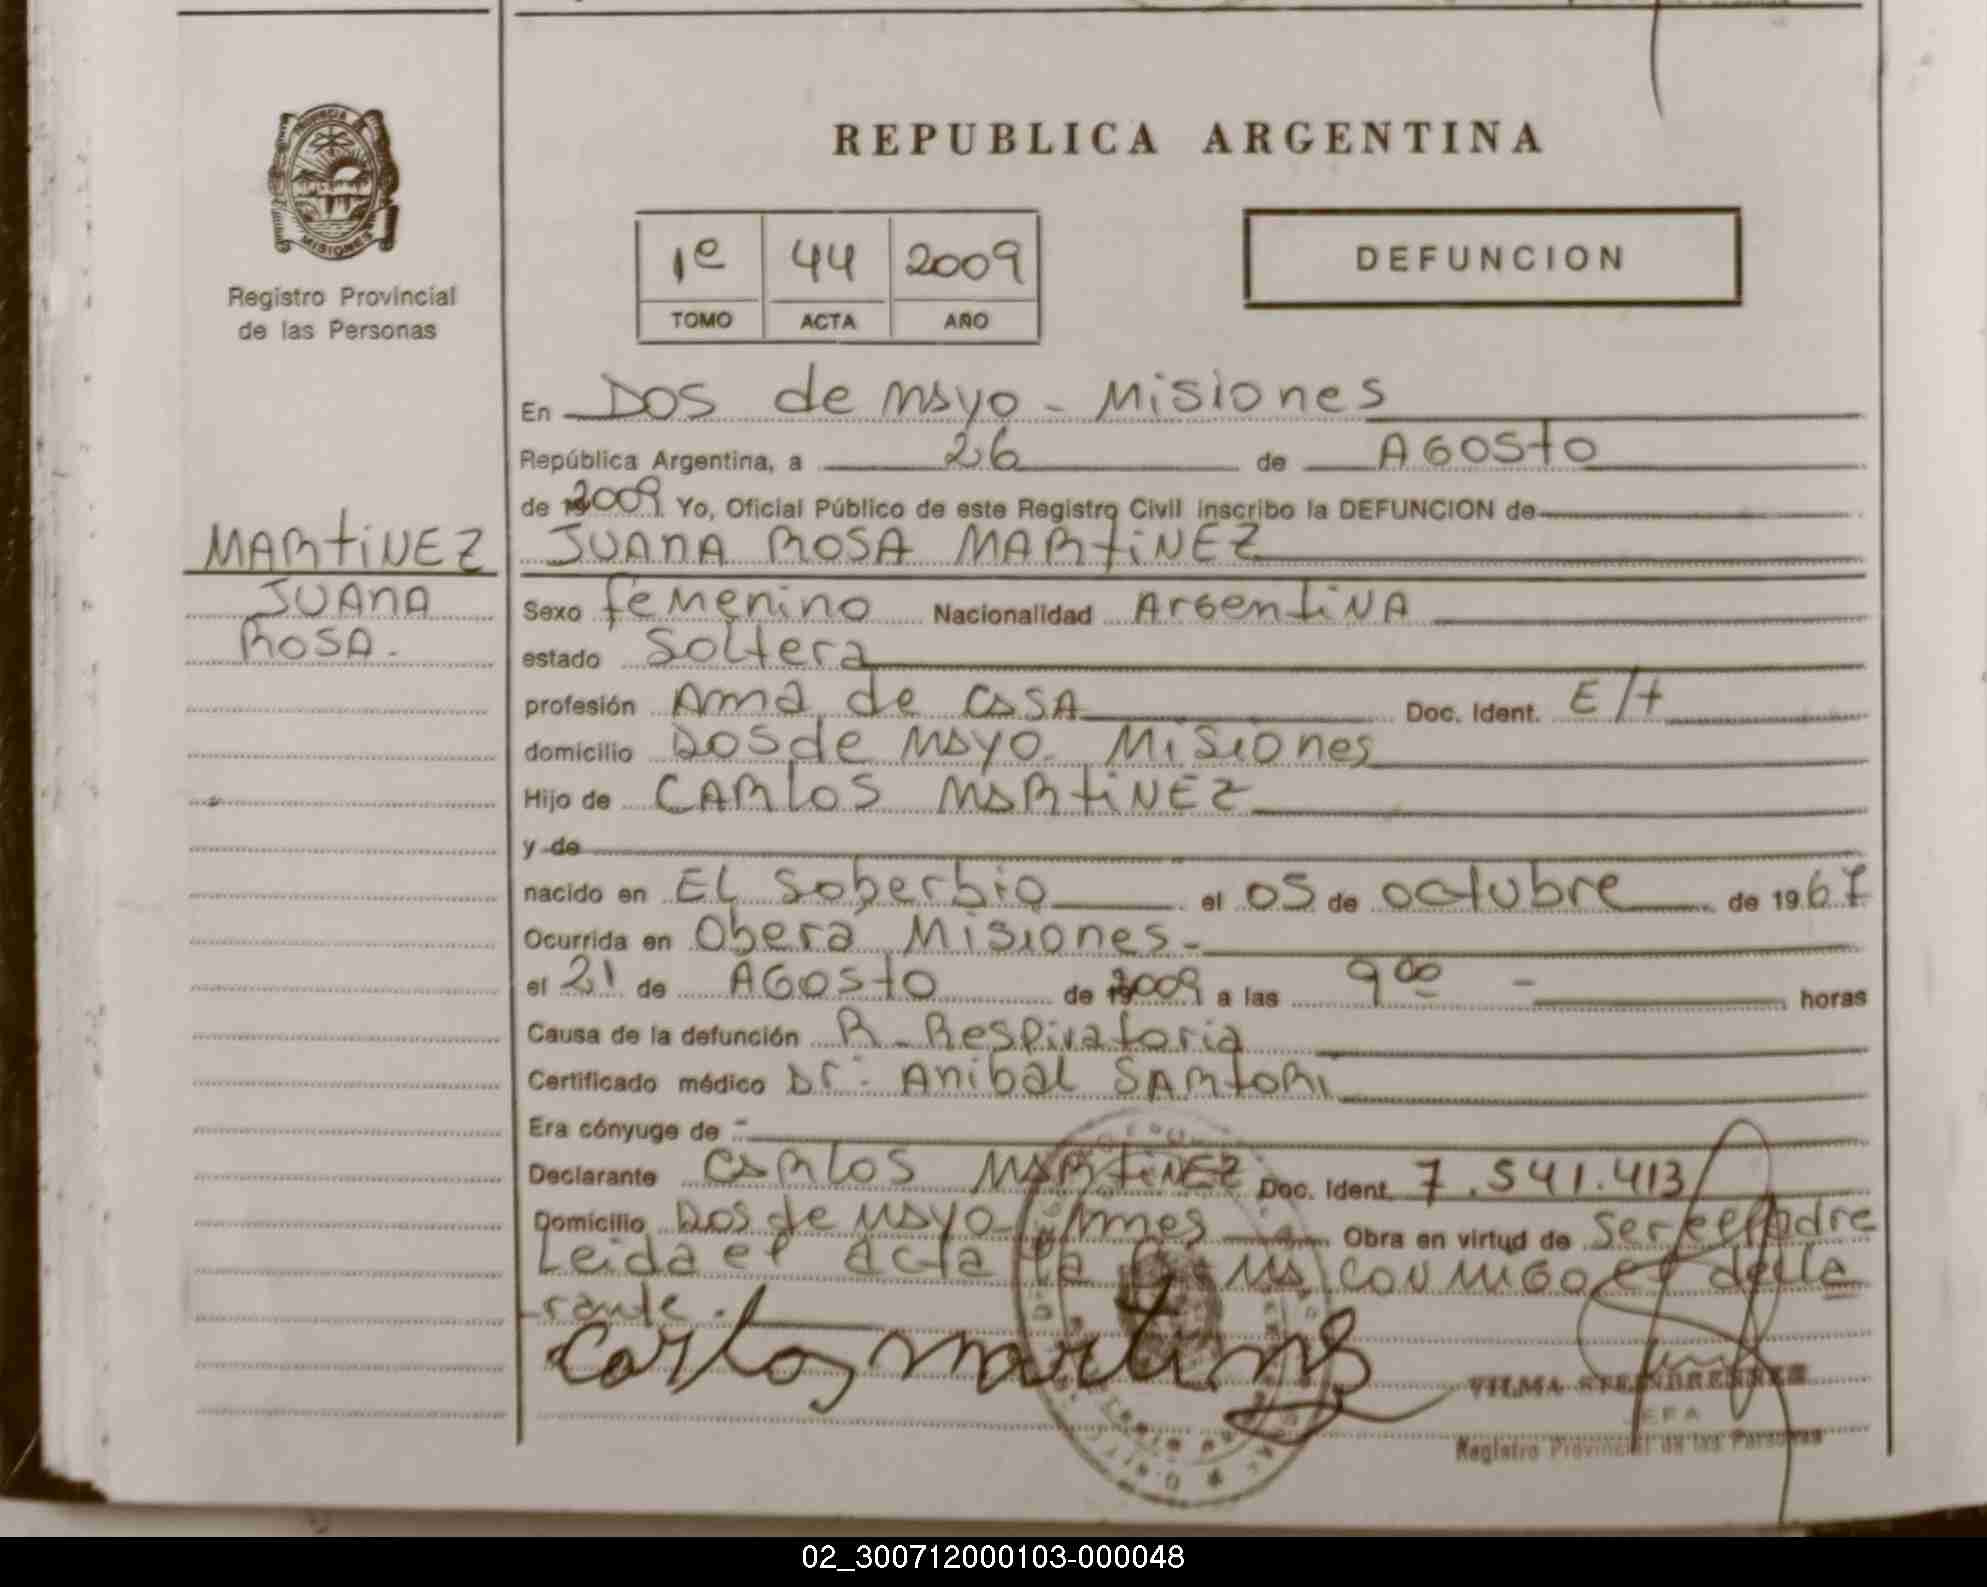 PROVINCIA
MISIONES
Registro Provincial
de las Personas
REPUBLICA ARGENTINA
1e 44 2009
TOMO ACTA AÑO
DEFUNCION
En Dos de mayo - Misiones
República Argentina, a 26 de AGOSTO
de 2009 Yo, Oficial Público de este Registro Civil inscribo la DEFUNCION de
MARTINEZ
JUANA
ROSA.
JUANA ROSA MARTINEZ
Sexo femenino Nacionalidad Argentina
estado Soltera
profesión Ama de casa Doc. Ident. E/t
domicilio Dos de mayo. Misiones
Hijo de CARLOS MARTINEZ
y de
nacido en El Soberbio el 05 de octubre de 1967
Ocurrida en Oberá Misiones-
el 21 de AGOSTO de 2009 a las 9 00 - horas
Causa de la defunción R. Respiratoria
Certificado médico Dr: Anibal SARTORI
Era cónyuge de -
Declarante CARLOS MARTINEZ Doc. Ident. 7.541.413
Domicilio Dos de mayo - Mnes Obra en virtud de ser el padre
Leida el acta la conmigo el decla
-rante.
Carlos martines
VILMA STEINBRENNER
JEFA
Registro Provincial de las Personas
02_300712000103-000048